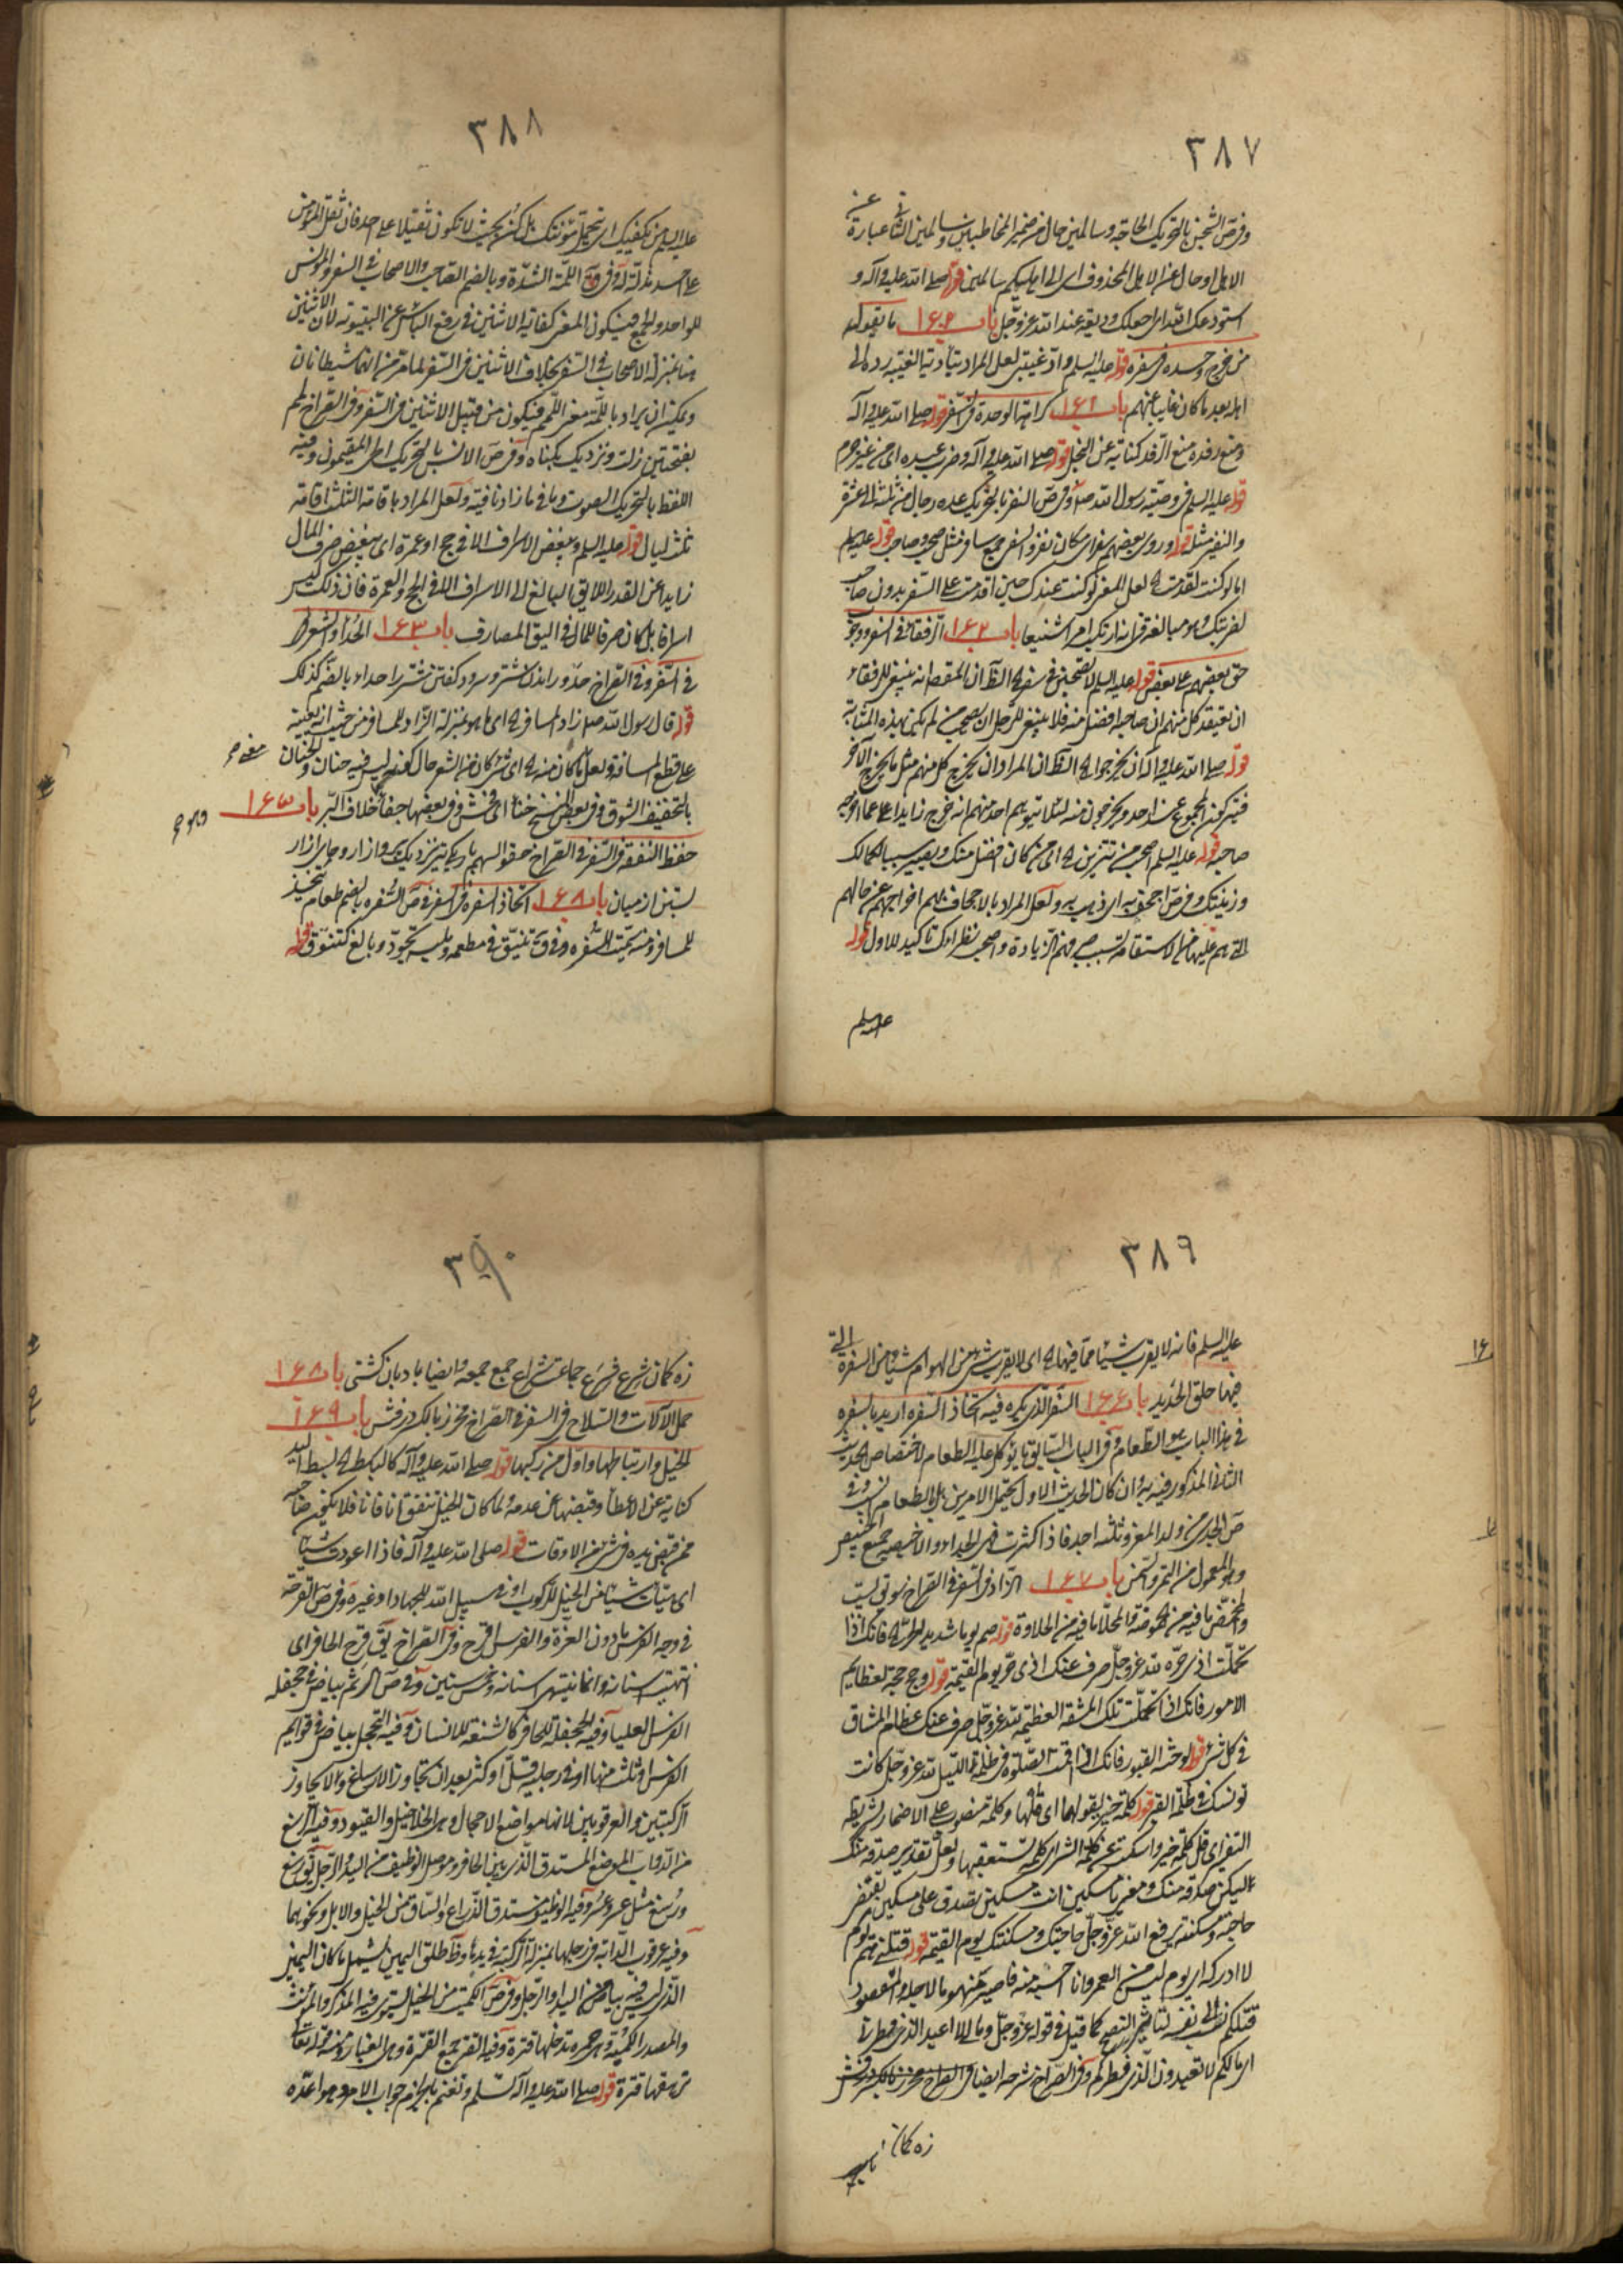 ٣٨٧
وفي ص الشجن بالتحريك الحاجة وسالمين حال من ضمير المخاطبين وسالمين الثاني عبارة عن
الابل او حال عن الابل المحذوف اي الى اهليكم سالمين قوله صلى الله عليه وآله و
استودعك الله اي اجعلك وديعة عند الله عز وجل باب ١٦٠ ما يقوله
من خرج وحده في سفره قوله عليه السلم وادّ غيبتي لعل المراد بتأدية الغيبة رده الى
اهله بعد ما كان غايبا عنهم باب ١٦١ كراهة الوحدة في السفر قوله صلى الله عليه وآله
ومنع رفده منع الرفد كناية عن البخل قوله صلى الله عليه وآله وضرب عبده اي من غير جرم
قوله عليه السلم في وصية رسول الله صلعم وفي ص النفر بالتحريك عدة رجال من ثلثة الى عشرة
والنفير مثله قوله وروى بعضهم سفر اي مكان نفر والسفر جمع سافر مثل صحب وصاحب قوله عليه السلم
اما لو كنت تقدمت اه لعل المعنى لو كنت عندك حين اقدمت على السفر بدون صاحب
لضربتك وهو مبالغة في انه ارتكب امرا شنيعا باب ١٦٢ الرفقاء في السفر ووجوب
حق بعضهم على بعض قوله عليه السلم لا تصحبن في سفر اه الظ ان المقص انه ينبغي للرفقاء
ان يعتقد كل منهم ان صاحبه افضل منه فلا ينبغي للرجل ان يصحب من لم يكن بهذه المثابة
قوله صلى الله عليه وآله ان يخرجوا اه الظ ان المراد ان يخرج كل منهم مثل ما يخرج الآخر
فيشركون المجموع عند احد ويخرجون منه لئلا يتوهم احد منهم انه خرج زايدا على ما اخرجه
صاحبه قوله عليه السلم اصحب من تتزين اه اي من كان افضل منك ويصير سببا لكمالك
وزينتك وفي ص اجحف به اي ذهب به ولعل المراد بالاجحاف بهم اخراجهم عن حالهم
التي هم عليها من الاستقامة بسبب صرفهم الزيادة واصحب نظراءك تاكيد للاول قوله
عليه السلم
٣٨٨
عليه السلم من يكفيك اي يتحمل مؤنتك بل كن بحيث لا تكون ثقيلا على احد فان ثقل المؤمن
على احد مذلة له وفي ق اللمّة الشدّة وبالضم الصاحب والاصحاب في السفر والمونس
للواحد والجمع فيكون المعنى كفاية الاثنين في رفع الباس عن البيتوتة لان الاثنين
هنا بمنزلة الاصحاب في السفر بخلاف الاثنين في السفر لما مر من انهما شيطانان
ويمكن ان يراد باللمّة معنى اللمم فيكون من قبيل الاثنين في السفر وفي الصراح لمم
بفتحتين زلت ونزديك بگناه وفي ص الانس بالتحريك اطى المقيمون وفيه
اللغط بالتحريك الصوت وما في ما زاد نافية ولعل المراد باقامة الثلث اقامة
ثلث ليال قوله عليه السلم ويبغض الاسراف الا في حج او عمرة اي يبغض صرف المال
زايدا عن القدر اللايق البالغ الى الاسراف الا في الحج والعمرة فان ذلك ليس
اسرافا بل كان صرفا للمال في اليق المصارف باب ١٦٣ الحداء والشعر
في السفر وفي الصراح حدو راندن شتر وسرود گفتن شتر را حداء بالضم كذلك
قوله قال رسول الله صلعم زاد المسافر اه اي ما هو بمنزلة الزاد للمسافر من حيث انه يعينه
على قطع المسافة ولعل ما كان منه اه اي شئ كان من الشعر حال كونه ليس فيه حنان والحنان
بالتخفيف الشوق وفي بعض النسخ خنا اي فحش وفي بعضها جفا خلاف البر باب ١٦٤
حفظ النفقة في السفر في الصراح حقو السهم باريكى تير نزديك پر وازار وجاى ازار
بستن از ميان باب ١٦٥ اتخاذ السفرة في السفر في ص السفرة بالضم طعام يتخذ
للمسافر ومنه سمّيت السفرة وفي ق تنيّق في مطعمه وملبسه تجوّد وبالغ كتنوّق قوله
٣٨٩
عليه السلم فانه لا يقرب شيئا مما فيها اه اي لا يقرب شئ من الهوام شيئا من السفرة التي
فيها حلق الحديد باب ١٦٦ السفر الذي يكره فيه اتخاذ السفرة اريد بالسفرة
في هذا الباب هو الطعام وفي الباب السابق ما يؤكل عليه الطعام لاختصاص الحديث
الثاني المذكور فيه به وان كان الحديث الاول يحتمل الامرين بل بالطعام انسب وفي
ص الجدي من ولد المعز وثلثة اجد فاذا اكثرت فهى الجداء والاخبصة جمع الخبيص
وهو المعمول من التمر والسمن باب ١٦٧ الزاد في السفر في الصراح سويق پست
والمحمّض ما فيه من حموضة والمحلا ما فيه من الحلاوة قوله صم يوما شديد الحر اه فانك اذا
تحملت اذى حره لله عز وجل صرف عنك اذى حر يوم القيمة قوله وحج حجة لعظايم
الامور فانك اذا تحملت تلك المشقة العظيمة لله عز وجل صرف عنك عظام المشاق
في كل شئ قوله لوحشة القبور فانك اذا اقمت الصلوة في ظلمة الليل لله عز وجل كانت
تونسك في ظلمة القبر قوله كلمة خير تقولها اي قلها وكلمة منصوب على الاضمار بشريطة
التفسير اي قل كلمة خير واسكت عن كلمة الشر اي كلمة تستعقبها ولعل تقدير صدقة منك
ليكن صدقة منك ومعنى يا مسكين انت مسكين تصدق على مسكين يفتقر
حاجته ومسكنته يرفع الله عز وجل حاجتك ومسكنتك يوم القيمة قوله قتلني هم يوم
لا ادركه اي يوم ليس من العمر وانا احسبه منه فاصير مهموما لاجله والمقصود
قتلكم نسب الى نفسه لتاثير النصح كما قيل في قوله عز وجل وما لي لا اعبد الذي فطرني
اي ما لكم لا تعبدون الذي فطركم وفي الصراح شرجه ايضا
زه كمان
٣٩٠
زه كمان شرع شرع جماعة شراع جمع جمعه وايضا بادبان كشتى باب ١٦٨
حمل الآلات والسلاح في السفر في الصراح مخرز بالكسر درفش باب ١٦٩
الخيل وارتباطها واول من ركبها قوله صلى الله عليه وآله كالباسط اه بسط اليد
كناية عن الاعطاء وقبضها عن عدمه ولما كان الخيل تنفق آنا فآنا فلا يكون صاحبه
ممن قبض يده في شئ من الاوقات قوله صلى الله عليه وآله فاذا اعددت شيئا
اي هيّأت شيئا من الخيل للركوب او في سبيل الله للجهاد او غيره وفي ص القرحة
في وجه الفرس ما دون الغرة والفرس اقرح وفي الصراح يق قرح الحافر اي
انتهت اسنانه وانما تنتهى اسنانه في خمس سنين وفي ص الرثم بياض في جحفلة
الفرس العليا وفيه الجحفلة للحافر كالشفة للانسان وفيه التحجل بياض في قوايم
الفرس او ثلث منها او في رجليه قل او كثر بعد ان تجاوز الارساغ ولا يجاوز
الركبتين والعرقوبين لانها مواضع الاحجال وهى الخلاخيل والقيود وفيه الرسغ
من الدواب الموضع المستدق الذي بين الحافر وموصل الوظيف من اليد والرجل يق رسغ
ورسغ مثل عسر وعسر وفيه الوظيف مستدق الذراع والساق من الخيل والابل ونحوهما
وفيه عرقوب الدابة في رجلها بمنزلة الركبة في يدها وظ طلق اليمين يشمل ما كان اليمين
الذي ليس فيه بياض من اليد او الرجل وفي ص الكميت من الخيل يستوى فيه المذكر والمؤنث
والمصدر الكمتة وهى حمرة تدخلها قترة وفيه القتر جمع القترة وهى الغبار ومنه قوله تعالى
ترهقها قترة قوله صلى الله عليه وآله تسلم وتغنم بالجزم جواب الامر وهو اعدّه